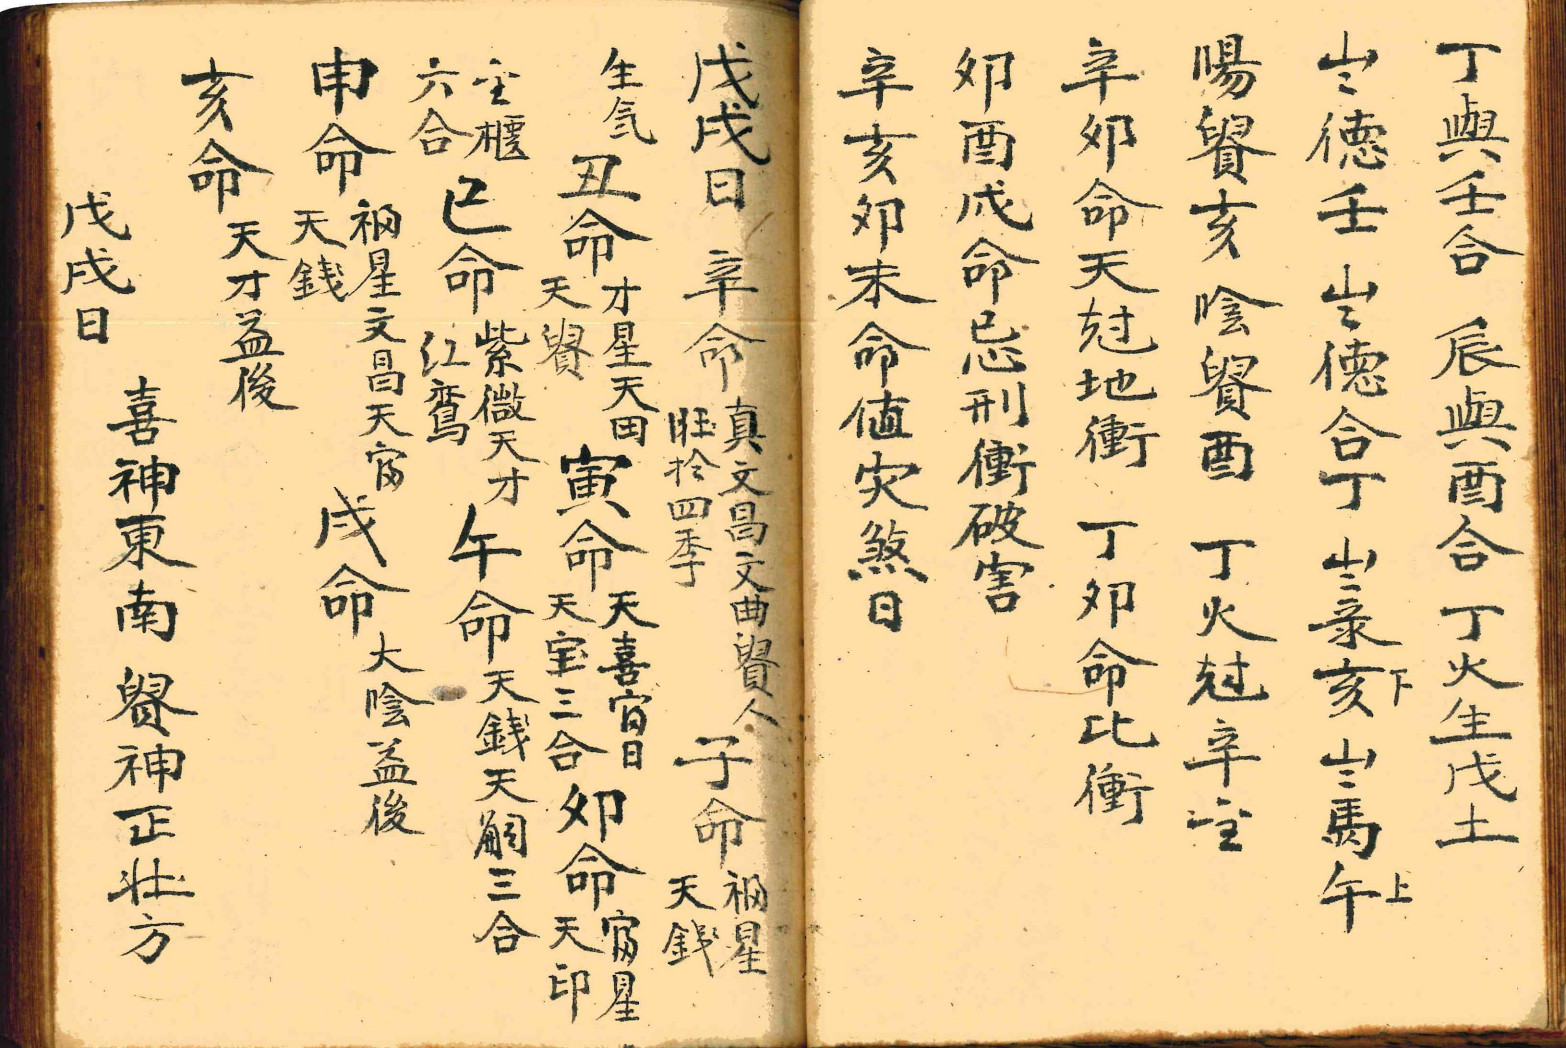 丁與壬合 辰與酉合 丁火生戊土
歲德壬 歲德合丁 歲彔亥下 歲馬午上
陽貴亥 陰貴酉 丁火尅辛金
辛卯命天尅地衝 丁卯命比衝
卯酉戌命忌刑衝破害
辛亥卯未命值灾煞日
戊戌日 辛命
真文昌文曲貴人
旺於四季
子命
福星
天錢
生氣
丑命
才星天田
天貴
寅命
天喜官日
天宝三合
卯命
富星
天印
金櫃
六合
巳命
紫微天才
红鸞
午命
天錢天嗣三合
申命
福星文昌天富
天錢
戌命
大陰益後
亥命
天才益後
戊戌日
喜神東南 貴神正北方